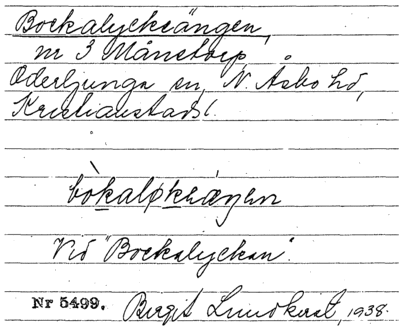 Bockalycksängen,
nr 3 Månstorp,
Oderljunga sn, N. Åsbo hd,
Kristianstads l.
bòkaløksæŋen
Vid "Bockalyckan".
Nr 5499. Birgit Lundkvist, 1938.